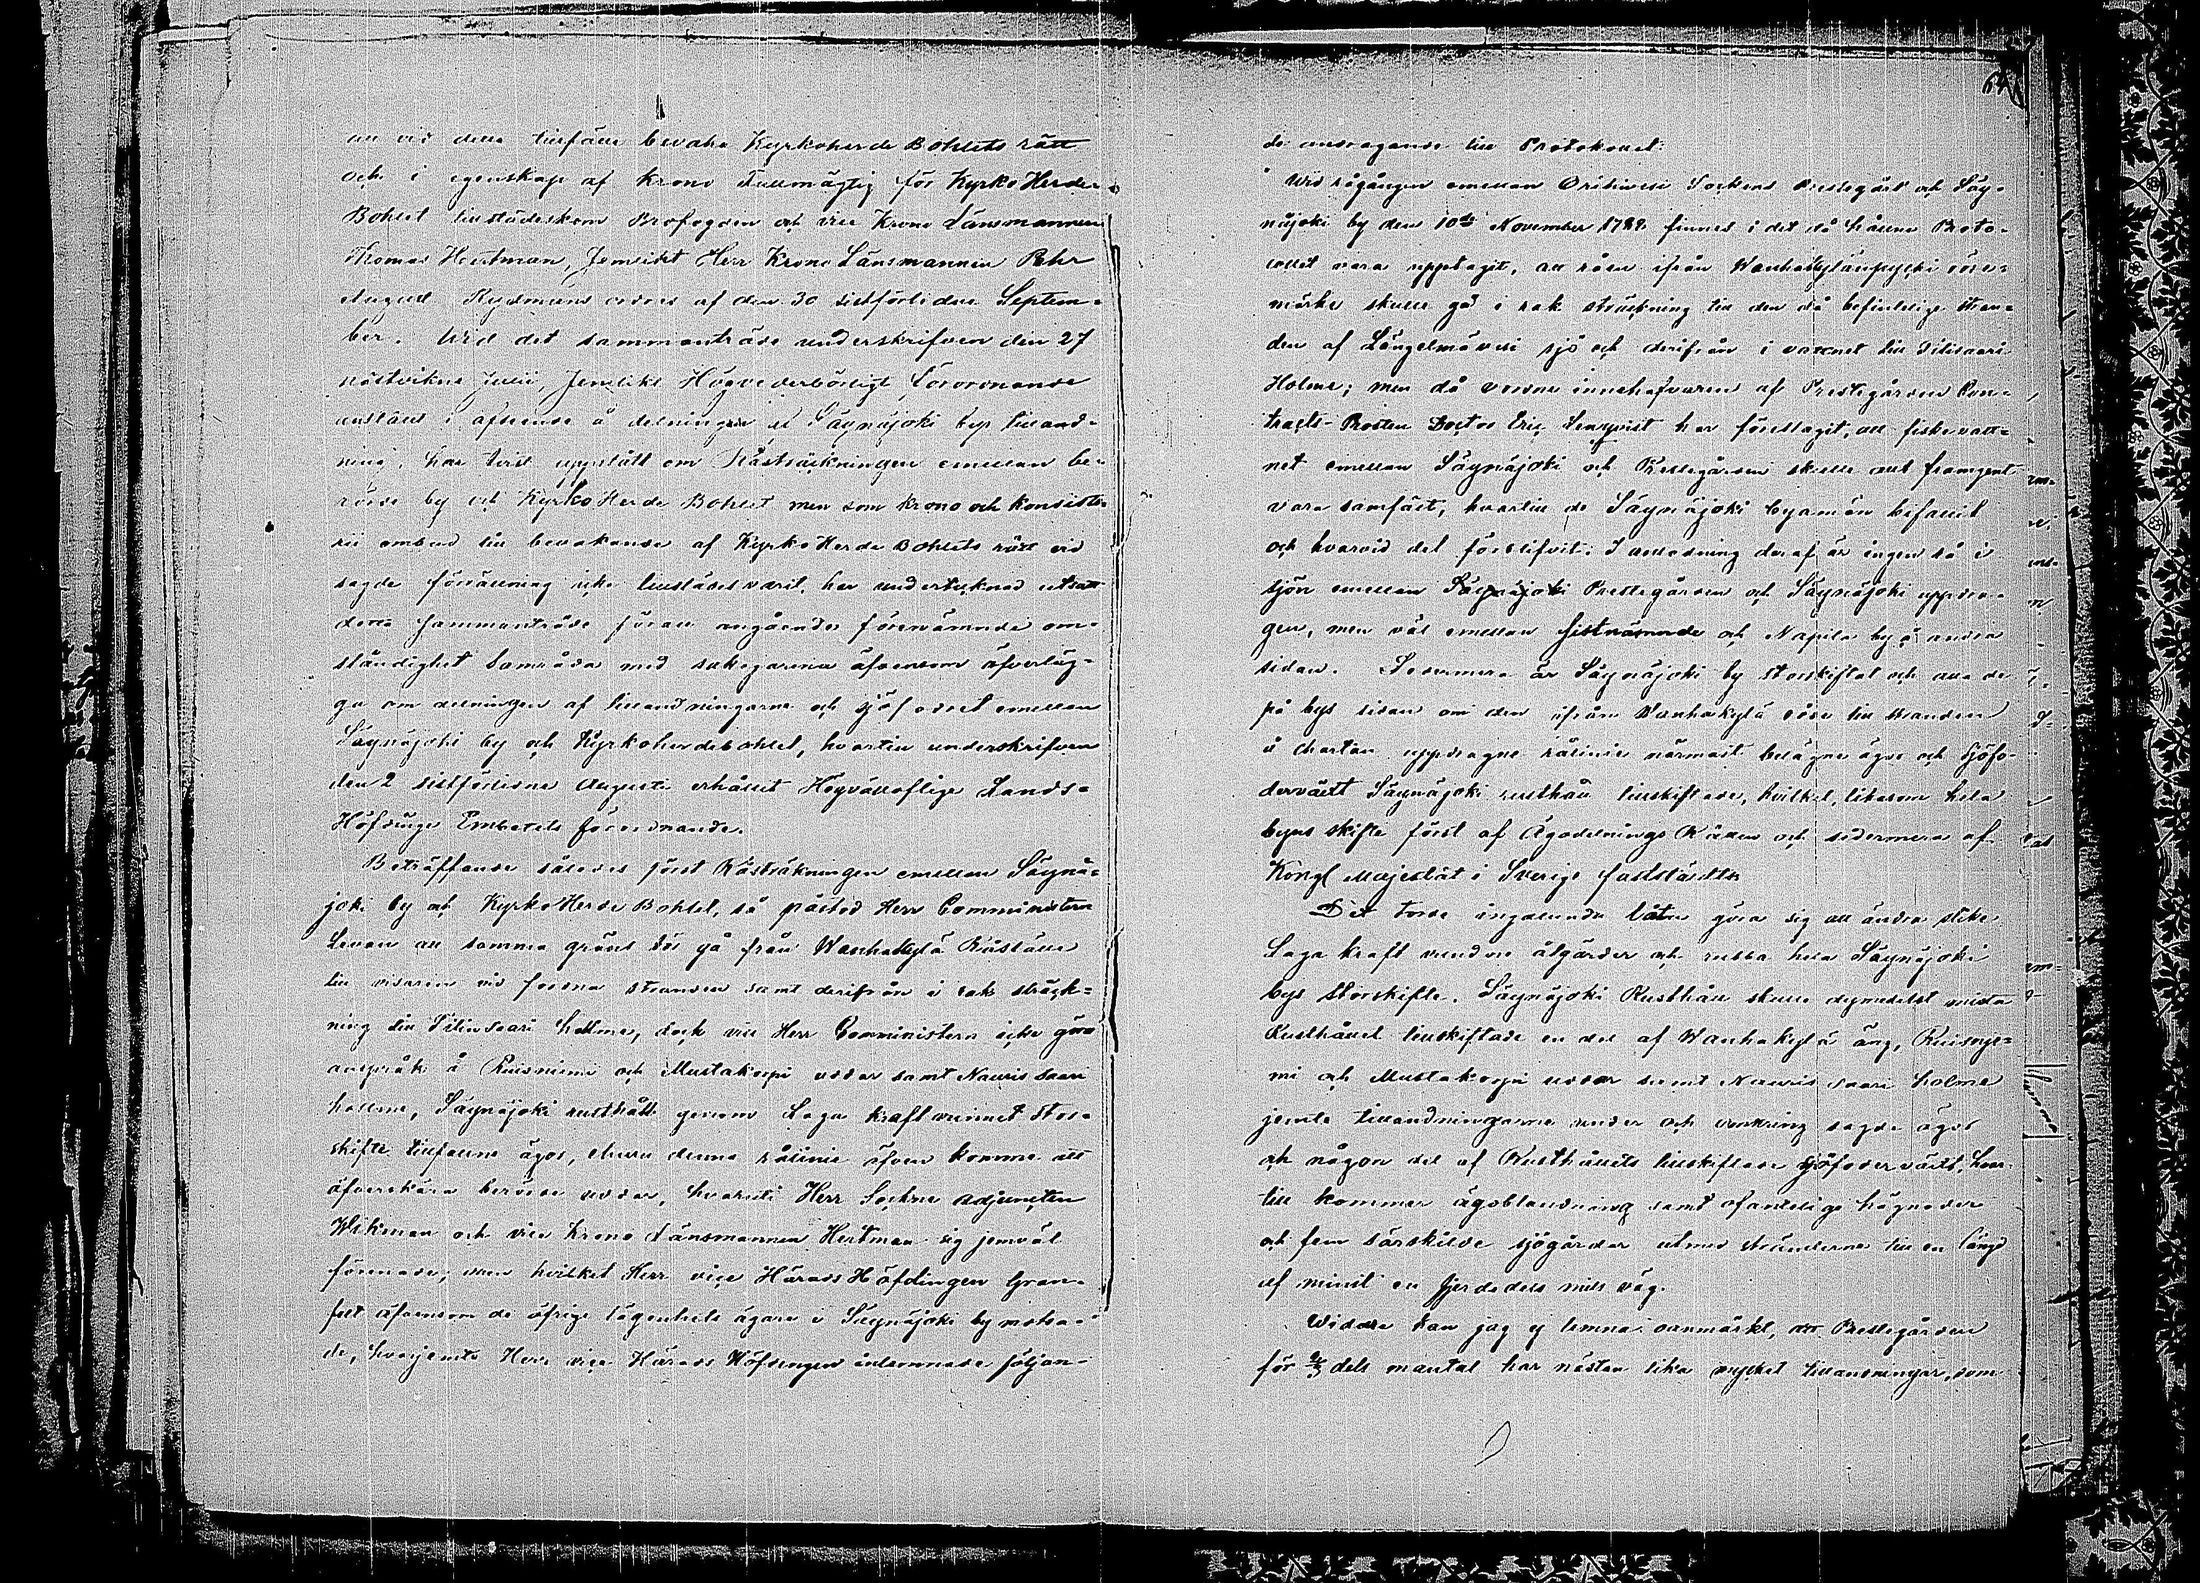 an vid detta tillfälle bevaka Kyrkoherde Bohlets rätt
och i egenskap af Krono Fullmägtig för KyrkoHerde
Bohlet tillstädeskom Brofogden och vice Krono Länsmannen
Thomas Hertman, Jemlikt Herr Krono Länsmannen Pehr
August Rydmans ordres af den 30 sistförlidne Septem-
ber. Wid det sammanträde underskrifven den 27
nästvikne Julii, Jemlikt Högvederbörligt Förordnande
anställt i afseende å delningen af Säynäjoki bys tilland-
ning, har tvist uppstått om Råsträckningen emellan be-
rörde by och KyrkoHerde Bohlet men som krono och konsisto-
rii ombud till bevakande af KyrkoHerde Bohlets rätt vid
sagde förrättning icke tillstädes varit, har undertecknad utsatt
detta sammanträde för att angående förenämnde om-
ständighet samråda med sakegarena äfvensom öfverläg-
ga om delningen af tillandningarne och sjöfodret emellan
Säynäjoki by och Kyrkoherdebohlet, hvartill underskrifven
den 2 sistförlidne Augusti erhållit Högvällofliga Lands-
Höfdinge Embetets förordnande.
Beträffande således först Råsträkningen emellan Säynä-
joki by och KyrkoHerde Bohlet, så påstod Herr Comministern
Levan att samma gräns bör gå från Wanhakylä Råställe
till visaren vid forna stranden samt derifrån i rak sträck-
ning till Siliinsaari hollme, dock vill Herr Comministern icke göra
anspråk å Ruisniemi och Mustakorpi uddar samt Naurissaari
hollme, Säynäjoki rusthåll genom Laga kraftvunnet stor-
skifte tillfallne ägor, ehuru denna rålinie äfven komme att
öfverskära berörde uddar, hvaruti Herr Sockne Adjuncten
Wikman och vice Krono Länsmannen Hertman sig jemväl
förenade; men hvilket Herr vice Härads Höfdingen Gran-
felt äfvensom de öfrige lägenhets ägare i Säynäjoki by motsa-
de, hvarjemte Herr vice Härads Höfdingen inlemnade följan-
de andragande till Protokollet:
Wid rågången emellan Orihvesi Sockens Prestegård och Säy-
näjoki by den 10de November 1789 finnes i det då hållne Proto-
collet vara upptagit, att råen ifrån
märke skulle gå i rak sträckning till den då befintelige stran-
den af Längelmävesi sjö och derifrån i vattnet till Silisaari
Holme; men då varne innehafvaren af Prestegården Con-
tracts-Prosten Doctor Eric Lenqvist har föreslagit, att fiskevatt-
net emellan Säynäjoki och Prestegården skulle allt framgent
vara samfält, hvartill de Säynäjoki byamän bifallit
och hvarvid det förblifvit; I anledning deraf är ingen rå i
sjön emellan Säynäjoki Prestegården och Säynäjoki uppdra-
gen, men väl emellan sistnämnde och Napila by å andra
sidan. Sedermera är Säynäjoki by storskiftat och alla de
på bys sidan om den ifrån Vanhakylä råse till stranden
å Chartan uppdragne rålinie närmast belägne ägor och sjöfo-
derväxt Säynäjoki rusthåll tillskiftade, hvilket, likasom hela
byns skifte först af Ägodelnings Rätten och sedermera af
Kongl Majestät i Sverige fastställdts
Det torde ingalunda låta göra sig att ändra slike
Laga kraft vundne åtgärder och rubba hela Säynäjoki
bys Storskifte. Säynäjoki Rusthåll skulle dymedelst mista
Rusthållet tillskiftade en del af Wanhakylä äng, Ruisnje-
mi och Mustakorpi uddar samt Naurissaari holme
jemte tillandningarne under och omkring sagde ägor
och någon del af Rusthållets tillskiftade sjöfoderväxt, hvar-
till kommer ägoblandning samt ofantelige hägnader
och fem särskilde sjögärdar utmed stränderne till en längd
af minst en fjerdedels mils väg.
Widare kan jag ej lemna oanmärkt, att Prestegården
för 2/3 dels mantal har nästan lika mycket tillandningar, som